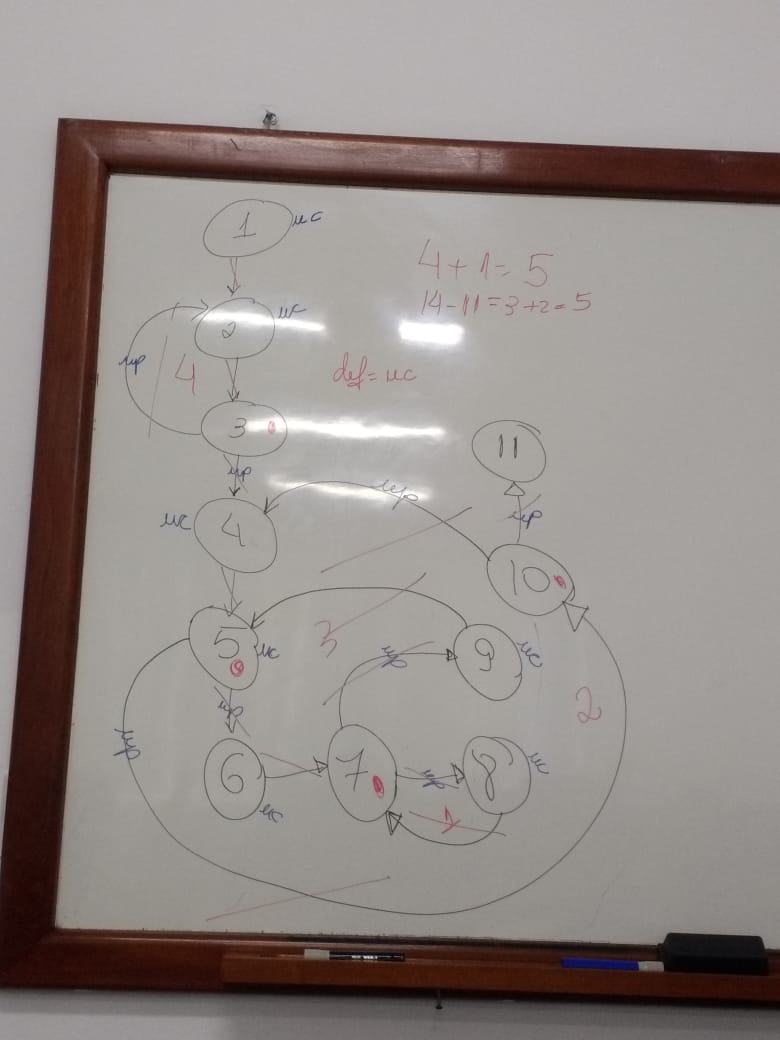 1 uc
4+1=5
14-11=3+2=5
2 uc
up 4
def=uc
3
up
11
up
up
uc 4
10
5 uc
3
up
9 uc
up
2
up
6 uc
7
up
8 uc
1